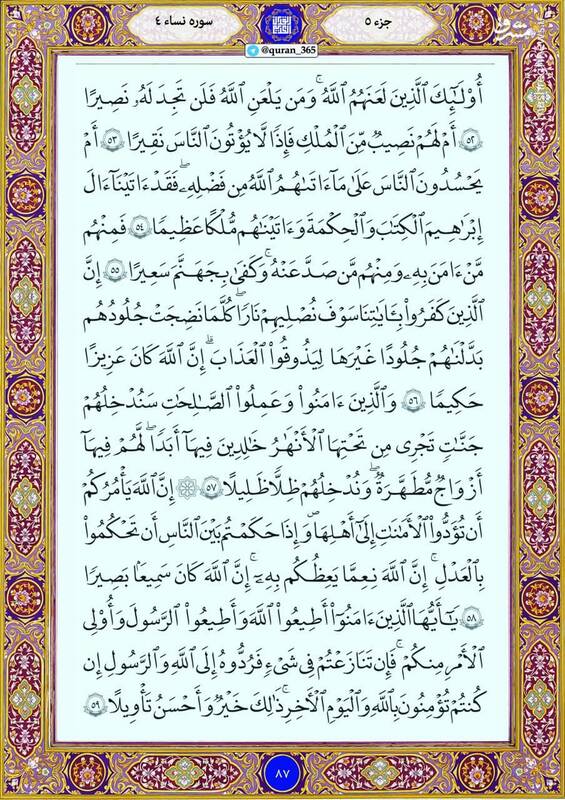 جزء ٥
سوره نساء ٤
@quran_365
مشرق
أُوْلَـٰٓئِكَ ٱلَّذِينَ لَعَنَهُمُ ٱللَّهُۖ وَمَن يَلْعَنِ ٱللَّهُ فَلَن تَجِدَ لَهُۥ نَصِيرًا
٥٢ أَمْ لَهُمْ نَصِيبٌ مِّنَ ٱلْمُلْكِ فَإِذًا لَّا يُؤْتُونَ ٱلنَّاسَ نَقِيرًا ٥٣ أَمْ
يَحْسُدُونَ ٱلنَّاسَ عَلَىٰ مَآ ءَاتَىٰهُمُ ٱللَّهُ مِن فَضْلِهِۦۖ فَقَدْ ءَاتَيْنَآ ءَالَ
إِبْرَٰهِيمَ ٱلْكِتَـٰبَ وَٱلْحِكْمَةَ وَءَاتَيْنَـٰهُم مُّلْكًا عَظِيمًا ٥٤ فَمِنْهُم
مَّنْ ءَامَنَ بِهِۦ وَمِنْهُم مَّن صَدَّ عَنْهُۚ وَكَفَىٰ بِجَهَنَّمَ سَعِيرًا ٥٥ إِنَّ
ٱلَّذِينَ كَفَرُواْ بِـَٔايَـٰتِنَا سَوْفَ نُصْلِيهِمْ نَارًاۖ كُلَّمَا نَضِجَتْ جُلُودُهُم
بَدَّلْنَـٰهُمْ جُلُودًا غَيْرَهَا لِيَذُوقُواْ ٱلْعَذَابَۗ إِنَّ ٱللَّهَ كَانَ عَزِيزًا
حَكِيمًا ٥٦ وَٱلَّذِينَ ءَامَنُواْ وَعَمِلُواْ ٱلصَّـٰلِحَـٰتِ سَنُدْخِلُهُمْ
جَنَّـٰتٍ تَجْرِى مِن تَحْتِهَا ٱلْأَنْهَـٰرُ خَـٰلِدِينَ فِيهَآ أَبَدًاۖ لَّهُمْ فِيهَآ
أَزْوَٰجٌ مُّطَهَّرَةٌۖ وَنُدْخِلُهُمْ ظِلًّا ظَلِيلًا ٥٧ ۞ إِنَّ ٱللَّهَ يَأْمُرُكُمْ
أَن تُؤَدُّواْ ٱلْأَمَـٰنَـٰتِ إِلَىٰٓ أَهْلِهَا وَإِذَا حَكَمْتُم بَيْنَ ٱلنَّاسِ أَن تَحْكُمُواْ
بِٱلْعَدْلِۚ إِنَّ ٱللَّهَ نِعِمَّا يَعِظُكُم بِهِۦٓۗ إِنَّ ٱللَّهَ كَانَ سَمِيعَۢا بَصِيرًا
٥٨ يَـٰٓأَيُّهَا ٱلَّذِينَ ءَامَنُوٓاْ أَطِيعُواْ ٱللَّهَ وَأَطِيعُواْ ٱلرَّسُولَ وَأُوْلِى
ٱلْأَمْرِ مِنكُمْۖ فَإِن تَنَـٰزَعْتُمْ فِى شَىْءٍ فَرُدُّوهُ إِلَى ٱللَّهِ وَٱلرَّسُولِ إِن
كُنتُمْ تُؤْمِنُونَ بِٱللَّهِ وَٱلْيَوْمِ ٱلْـَٔاخِرِۚ ذَٰلِكَ خَيْرٌ وَأَحْسَنُ تَأْوِيلًا ٥٩
٨٧